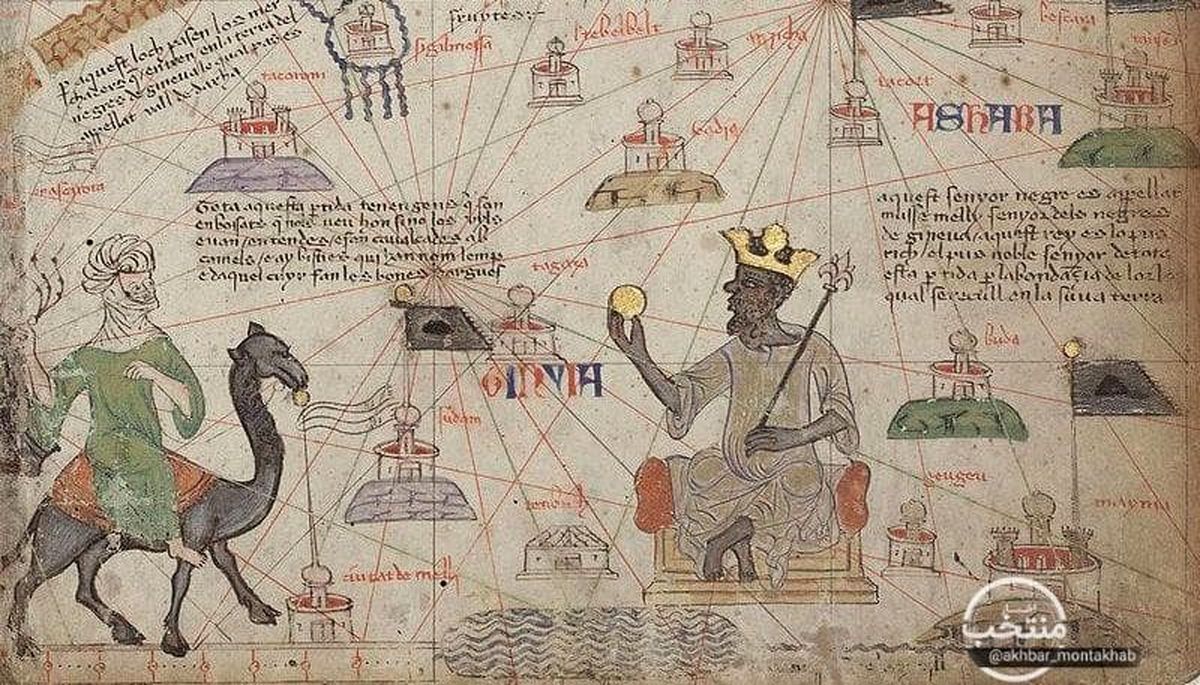 P aquest loch pasen los mer
chaders q entren en la terra del
negres de gineua lo qual pas es
apellat vall de darha
sigilmessa
tebelbelt
tacoroni
tacort
ASHARA
Tota aquesta ptida tenen gens q son
enbossats q nols veu hon sino los uyls
e uan en tendes e fan caualcades ab
camels e ay bisties qui han nom lemp
e daquel cuyr fan les bones dargues
aquest senyor negre es apellat
musse melly senyor dels negres
de gineua aquest rey es lo pus
rich el pus noble senyor de tote
esta ptida p labondacia de lor l
qual se recull en la sua terra
tagaza
buda
GINYIA
sudam
tenbuch
geugeu
mayma
ciutat de melly
منتخب
@akhbar_montakhab